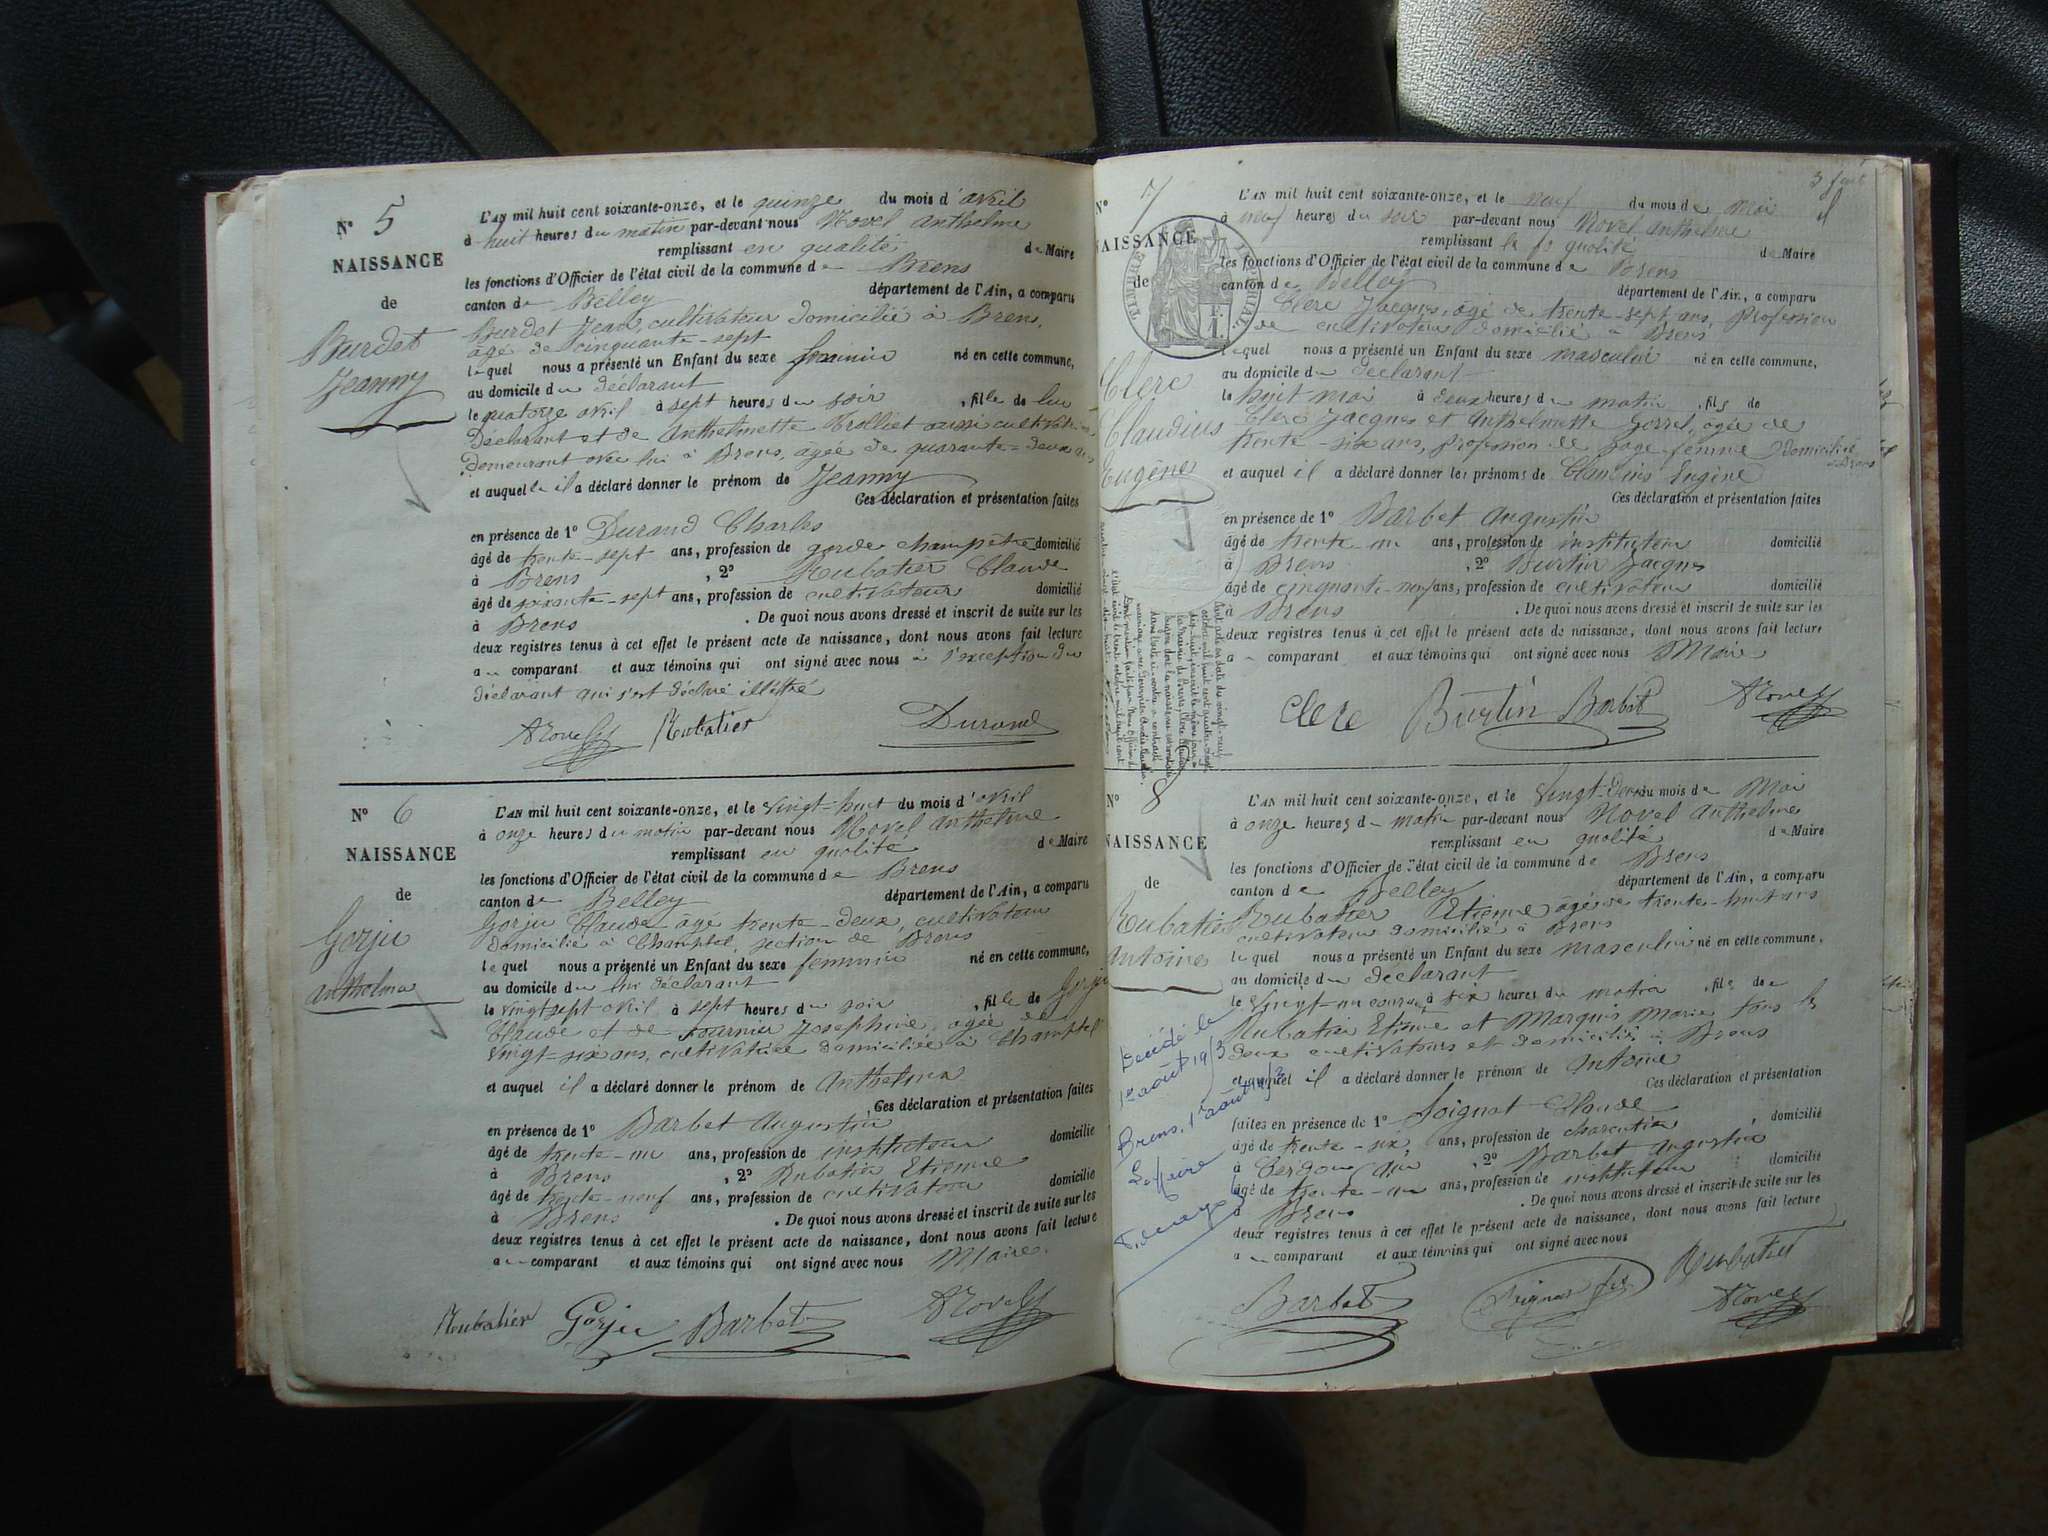 N° 5
NAISSANCE
de
Burdet
Jeanny
L'AN mil huit cent soixante-onze, et le quinze du mois d'avril
à huit heures du matin par-devant nous Novel Anthelme
remplissant en qualité de Maire
les fonctions d'Officier de l'état civil de la commune de Brens
canton de Belley département de l'Ain, a comparu
Burdet Jean, cultivateur domicilié à Brens,
âgé de cinquante-sept
lequel nous a présenté un Enfant du sexe féminin né en cette commune,
au domicile du déclarant
le quatorze avril à sept heures du soir, fille de lui
déclarant et de Anthelmette Trolliet aussi
demeurant avec lui à Brens, agée de quarante-deux ans
et auquelle il a déclaré donner le prénom de Jeanny
Ces déclaration et présentation faites
en présence de 1° Durand Charles
âgé de trente-sept ans, profession de garde champêtre domicilié
à Brens, 2° Rubatier Claude
âgé de soixante-sept ans, profession de cultivateur domicilié
à Brens. De quoi nous avons dressé et inscrit de suite sur les
deux registres tenus à cet effet le présent acte de naissance, dont nous avons fait lecture
au comparant et aux témoins qui ont signé avec nous à l'exception du
déclarant qui s'est déclaré illétré
ANovel Rubatier Durand
N° 6
NAISSANCE
de
Gorju
Anthelma
L'AN mil huit cent soixante-onze, et le vingt-huit du mois d'avril
à onze heures du matin par-devant nous Novel Anthelme
remplissant en qualité de Maire
les fonctions d'Officier de l'état civil de la commune de Brens
canton de Belley département de l'Ain, a comparu
Gorju Claude agé trente-deux, cultivateur
domicilié à Champtel, section de Brens
lequel nous a présenté un Enfant du sexe féminin né en cette commune,
au domicile du lui déclarant
le vingt sept avril à sept heures du soir, fille de Gorju
Claude et de Fournier Josephine, agée de
vingt-six ans, cultivatrice domiciliée à Champtel
et auquel il a déclaré donner le prénom de Anthelma
Ces déclaration et présentation faites
en présence de 1° Barbet Augustin
âgé de trente-un ans, profession de instituteur domicilié
à Brens, 2° Rubatier Etienne
âgé de trente-neuf ans, profession de cultivateur domicilié
à Brens. De quoi nous avons dressé et inscrit de suite sur les
deux registres tenus à cet effet le présent acte de naissance, dont nous avons fait lecture
au comparant et aux témoins qui ont signé avec nous Maire.
Rubatier Gorju Barbet ANovel
N° 7
NAISSANCE
de
Clerc
Claudius
Eugène
L'AN mil huit cent soixante-onze, et le neuf du mois de Mai
à neuf heures du soir par-devant nous Novel Anthelme
remplissant qualité de Maire
les fonctions d'Officier de l'état civil de la commune de Brens
canton de Belley département de l'Ain, a comparu
Clerc Jacques, agé de trente-sept ans, profession
de cultivateur domicilié à Brens
lequel nous a présenté un Enfant du sexe masculin né en cette commune,
au domicile du déclarant
le huit mai à deux heures du matin, fils de
Clerc Jacques et Anthelmette Gorrel, agée de
trente-six ans, profession de sage femme domiciliée
à Brens
et auquel il a déclaré donner les prénoms de Claudius Eugène
Ces déclaration et présentation faites
en présence de 1° Barbet Augustin
âgé de trente-un ans, profession de instituteur domicilié
à Brens, 2° Burtin Jacques
âgé de cinquante-neuf ans, profession de cultivateur domicilié
à Brens. De quoi nous avons dressé et inscrit de suite sur les
deux registres tenus à cet effet le présent acte de naissance, dont nous avons fait lecture
au comparant et aux témoins qui ont signé avec nous Maire
Clerc Burtin Barbet ANovel
N° 8
NAISSANCE
de
Rubatier
Antoine
Décédé le
1er août 19/3
Brens, 1er août
Le Maire
L'AN mil huit cent soixante-onze, et le vingt-deux du mois de Mai
à onze heures du matin par-devant nous Novel Anthelme
remplissant en qualité de Maire
les fonctions d'Officier de l'état civil de la commune de Brens
canton de Belley département de l'Ain, a comparu
Rubatier Etienne agé de trente-huit ans
cultivateur domicilié à Brens
lequel nous a présenté un Enfant du sexe masculin né en cette commune,
au domicile du déclarant
le vingt-un courant à six heures du matin, fils de
Rubatier Etienne et Marquis Marie tous les
deux cultivateurs et domiciliés à Brens
et auquel il a déclaré donner le prénom de Antoine
Ces déclaration et présentation
faites en présence de 1° Soignat Claude
âgé de trente-six, ans, profession de charentier domicilié
à Cerdon (Ain, 2° Barbet Augustin
âgé de trente-un ans, profession de instituteur domicilié
à Brens. De quoi nous avons dressé et inscrit de suite sur les
deux registres tenus à cet effet le présent acte de naissance, dont nous avons fait lecture
au comparant et aux témoins qui ont signé avec nous
Barbet Rubatier ANovel